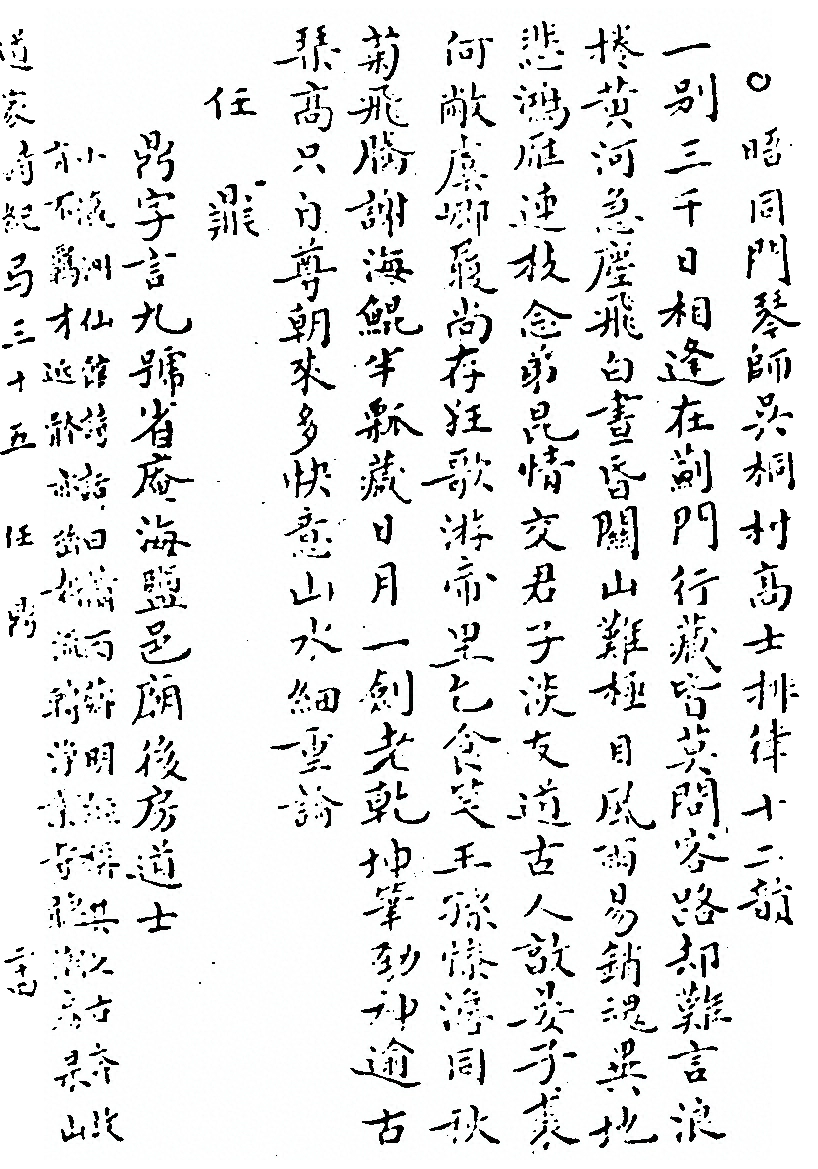 ○晤同門琴師吳桐村高士排律十二韻
一別三千日相逢在薊門行藏皆莫問客路却難言浪
捲黃河急塵飛白晝昏關山難極目風雨易銷魂異地
悲鴻雁連枝念弟昆情交君子淡友道古人敦晏子裘
何敝虞卿屐尚存狂歌游帝里乞食笑王孫懷海同秋
菊飛觴謝海鯤半瓢藏日月一劍老乾坤筆勁神逾古
琴高只自尊朝來多快意山水細重論
任鼎
鼎字言九號省庵海鹽邑廟後房道士
小瀛洲仙館詩話曰蕭雨鄉明經稱其人古奇
有不羈才
道家詩紀弓三十五 任鼎